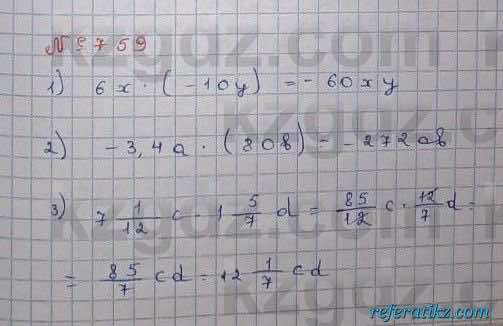 № 759
1) 6x · (-10y) = -60xy
2) -3,4a · (80b) = -272ab
3) 7 1/12 c · 1 5/7 d = 85/12 c · 12/7 d =
= 85/7 cd = 12 1/7 cd
kzgdz.com
referatikz.com